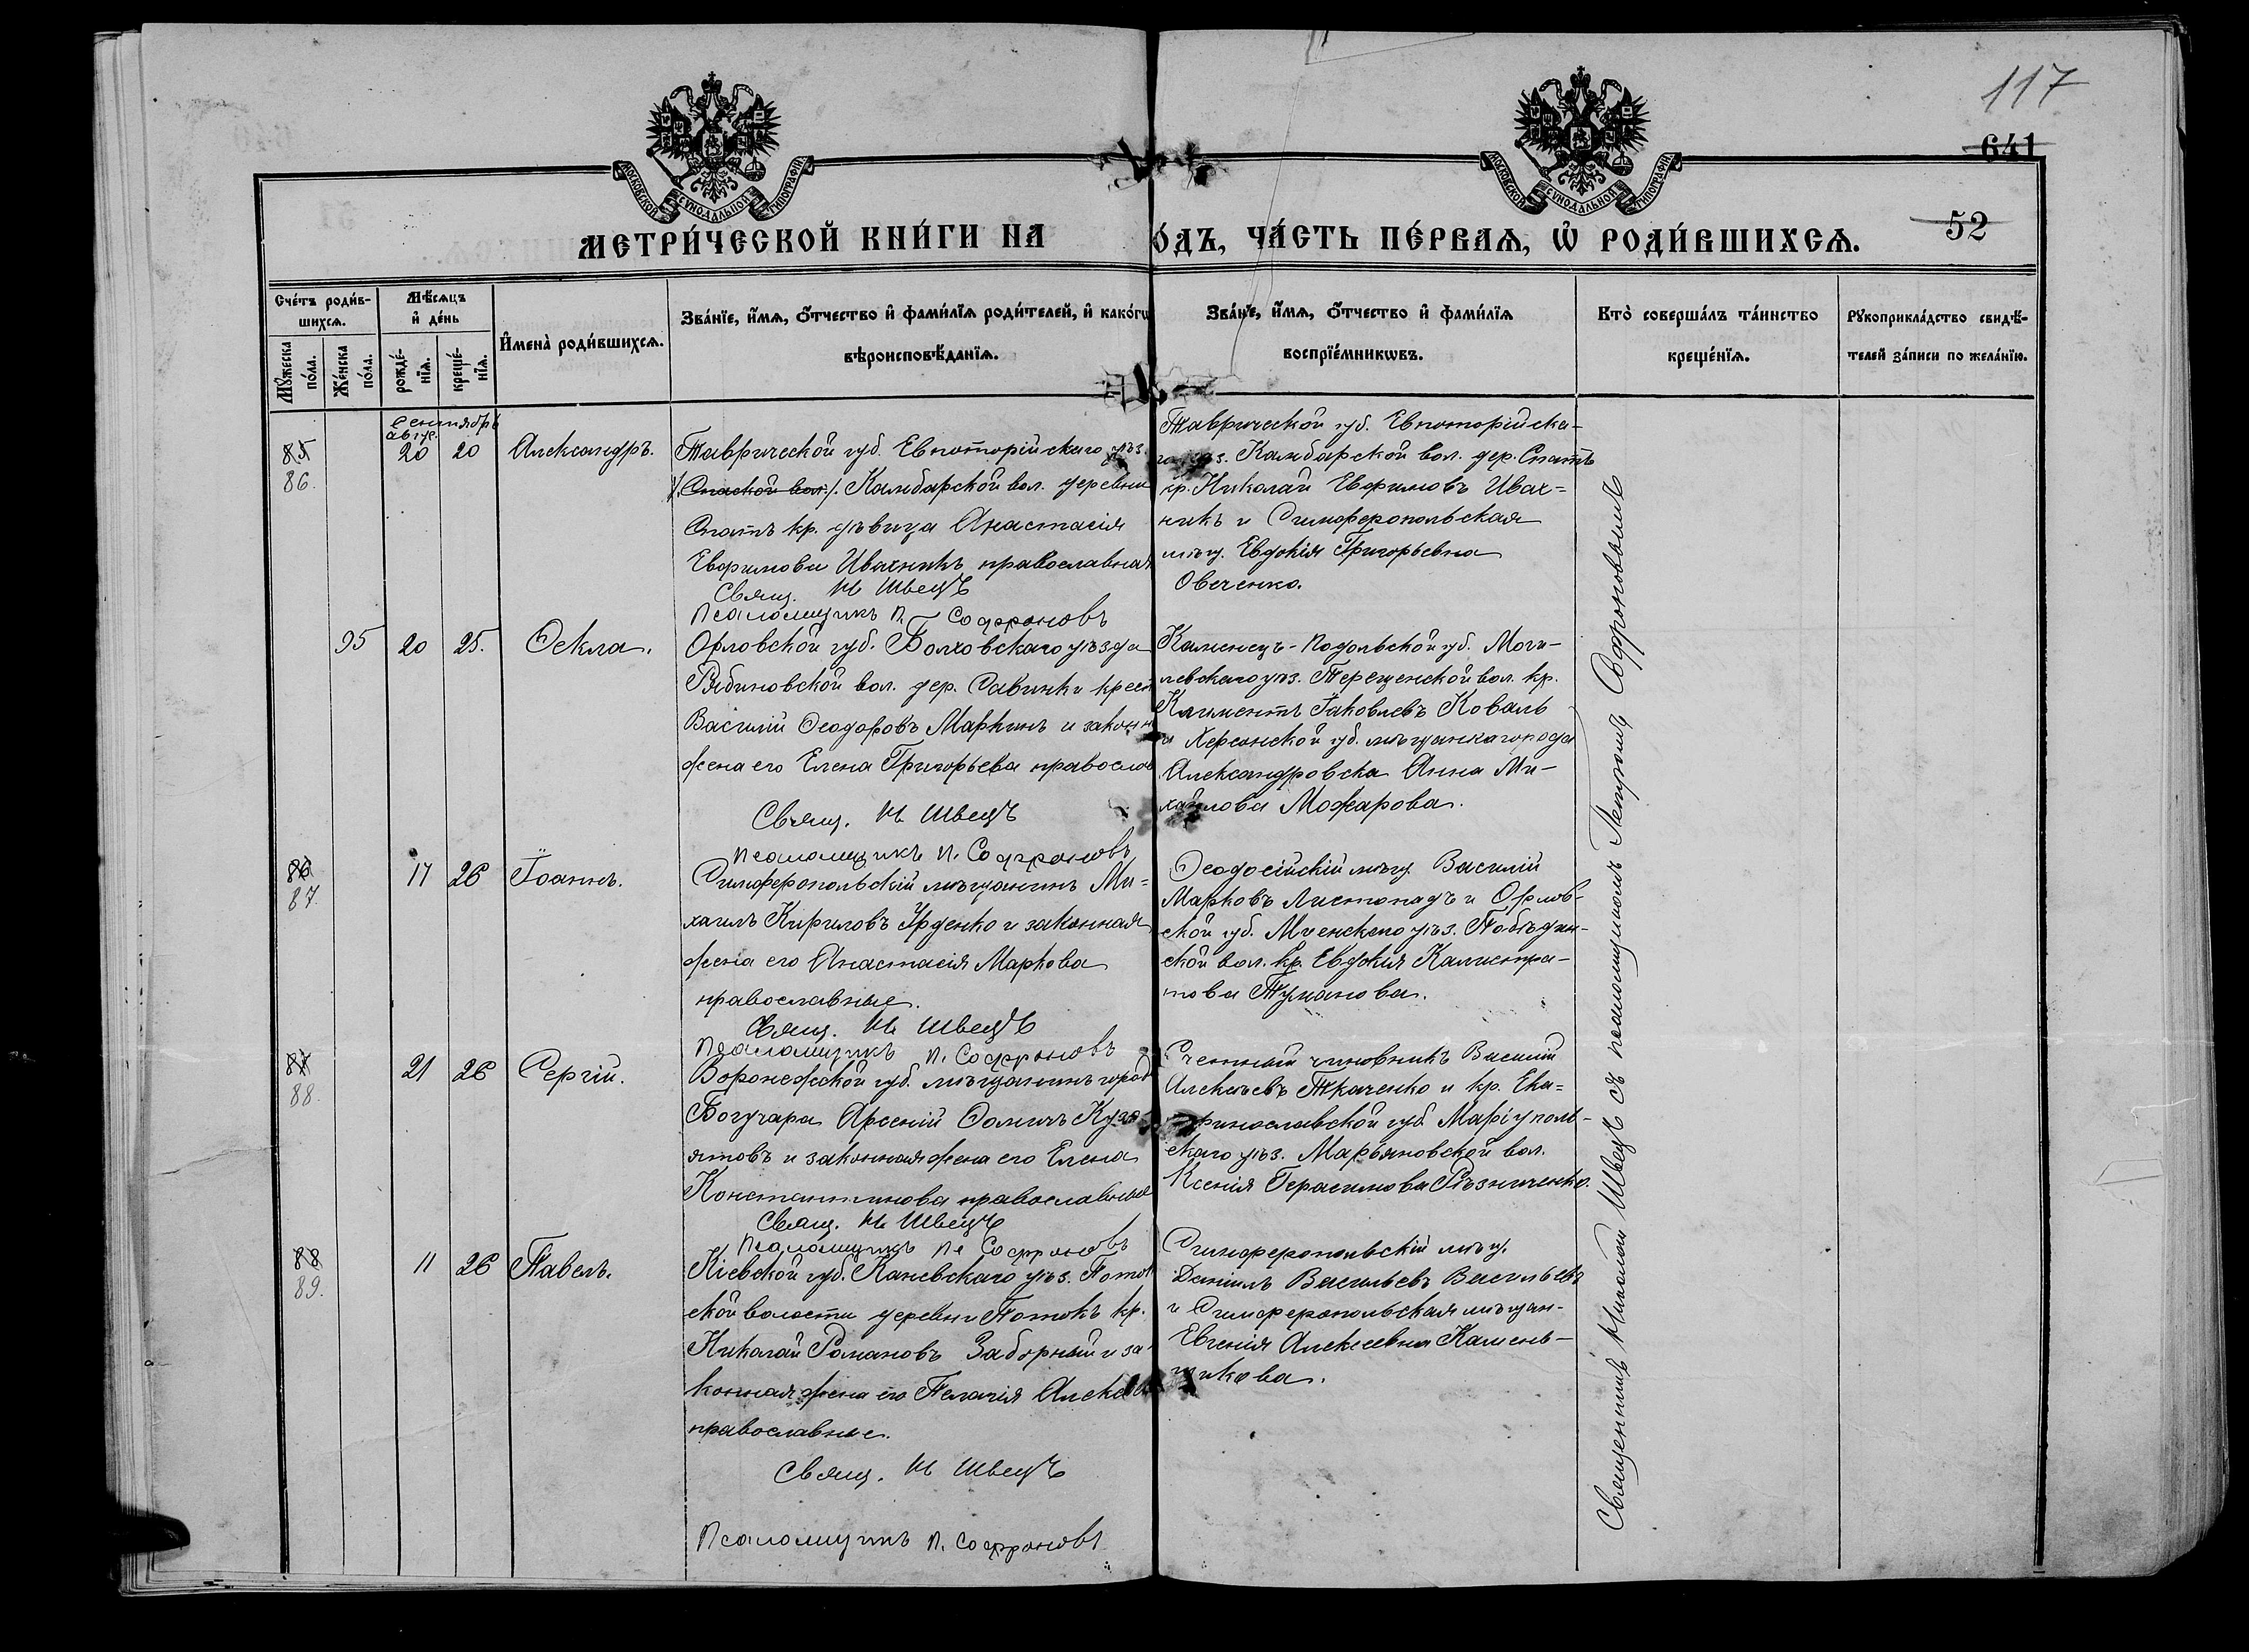 117
641
52
МОСКОВСКОЙ СѴНОДАЛЬНОЙ ТИПОГРАФІИ
МОСКОВСКОЙ СѴНОДАЛЬНОЙ ТИПОГРАФІИ
МЕТРИ́ЧЕСКОЙ КНИ́ГИ НА
О́ДЪ, ЧА́СТЬ ПЕ́РВАѦ, Ѡ҆ РОДИ́ВШИХСѦ.
Сче́тъ роди́в-
шихсѧ.
Мꙋ́жеска по́ла.
Же́нска по́ла.
Мѣ́сѧцъ
и҆ де́нь
рожде́-
нїѧ.
креще́-
нїѧ.
И҆мена̀ роди́вшихсѧ.
Зва́нїе, и҆́мѧ, ѻ҆́тчество и҆ фами́лїѧ роди́телей, и҆ како́гѡ
вѣроисповѣ́данїѧ.
Зва́нїе, и҆́мѧ, ѻ҆́тчество и҆ фами́лїѧ
воспрїе́мникѡвъ.
Кто̀ соверша́лъ та́инство
креще́нїѧ.
Рꙋкоприкла́дство свидѣ́-
телей за́писи по жела́нїю.
Сентябрь
авгус.
85
86.
20 20 Александръ.
Таврической губ. Евпоторійскаго уѣз.
/. Спаской вол. /. Камбарской вол. деревни
Спатъ кр. дѣвица Анастасія
Евфимова Ивахникъ православная
Свящ. Н. Швецъ
Псаломщикъ П. Софроновъ
Таврической губ. Евпоторійска-
го уѣз. Камбарской вол. дер. Спатъ
кр. Николай Евфимовъ Ивах=
никъ и Симферопольская
мѣщ. Евдокія Григорьевна
Овченко.
95 20 25. Ѳекла.
Орловской губ. Болховскаго уѣзда
Рябиновской вол. дер. Савинки крест
Василій Ѳеодоровъ Маркинъ и законн
жена его Елена Григорьева православ
Свящ. Н. Швецъ
Псаломщикъ П. Софроновъ
Каменецъ-Подольской губ. Моги-
левскаго уѣз. Терещенской вол. кр.
Климентъ Іаковлевъ Коваль
и Херсонской губ. мѣщанка города
Александровска Анна Ми-
хайлова Можарова.
86
87.
17 26 Іоаннъ.
Симферопольскій мѣщанинъ Ми=
хаилъ Кириловъ Урденко и законная
жена его Анастасія Маркова
православные.
Свящ. Н. Швецъ
Псаломщикъ П. Софроновъ
Ѳеодосійскій мѣщ. Василій
Марковъ Листопадъ и Орлов-
ской губ. Мценскаго уѣз. Побѣдин-
ской вол. кр. Евдокія Калистра-
това Туманова.
87
88.
21 26 Сергій.
Воронежской губ. мѣщанинъ город
Богучара Арсеній Ѳомичъ
ятовъ и законная жена его Елена
Константинова православные
Свящ. Н. Швецъ
Псаломщикъ П. Софроновъ
Счетный чиновникъ Василій
Алексѣевъ Ткаченко и кр. Ека=
теринославской губ. Маріуполь-
скаго уѣз. Марьяновской вол.
Ксенія Герасимова Рѣзниченко.
88
89.
11 26 Павелъ.
Кіевской губ. Каневскаго уѣз. Поток
ской волости деревни Потокъ кр.
Николай Романовъ Заборный и за-
конная жена его Пелагія Алексѣева
православные.
Свящ. Н. Швецъ
Псаломщикъ П. Софроновъ
Симферопольскій мѣщ.
Даніилъ Васильевъ Васильевъ
и Симферопольская мѣщан-
Евгенія Алексеевна Камень-
щикова.
Священникъ Николай Швецъ съ псаломщикомъ Петромъ Софроновымъ